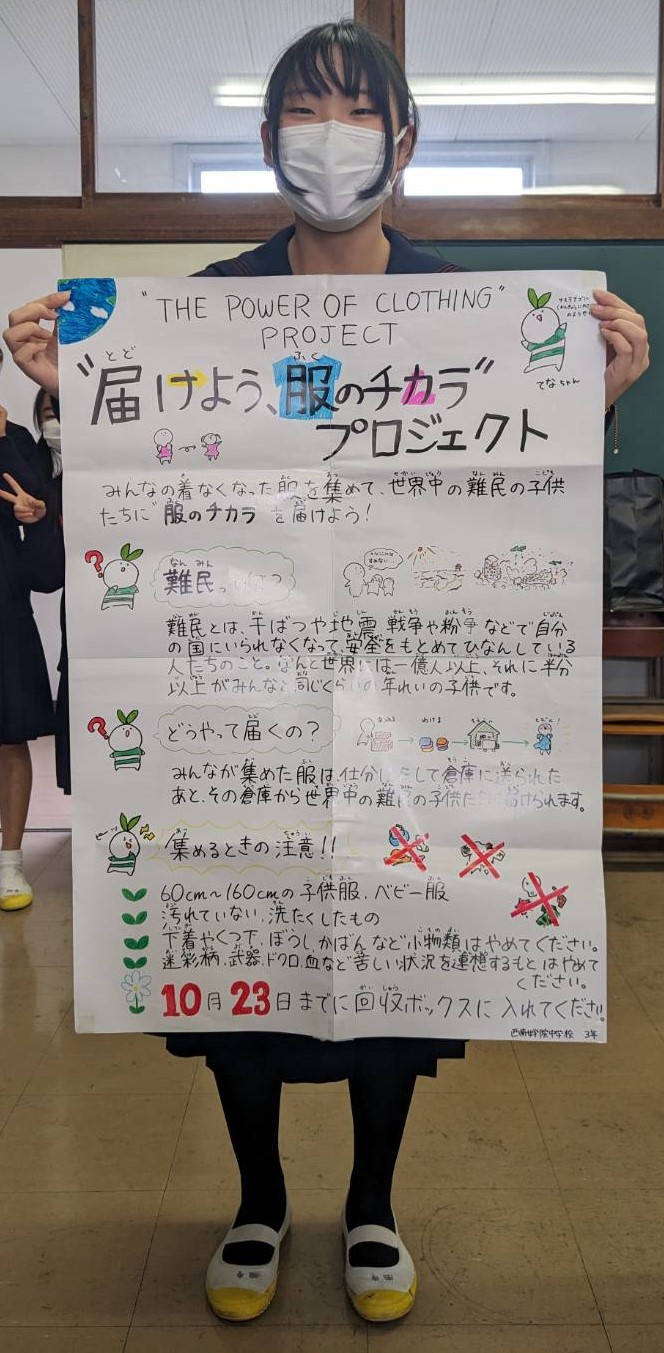 "THE POWER OF CLOTHING"
PROJECT
"届けよう、服のチカラ"
プロジェクト
てなちゃん
みんなの着なくなった服を集めて、世界中の難民の子供
たちに"服のチカラ"を届けよう!
難民って何?
難民とは、干ばつや地震 戦争や紛争などで自分
の国にいられなくなって、安全をもとめてひなんしている
人たちのこと。なんと世界には一億人以上、それに半分
以上がみんなと同じくらいの年れいの子供です。
どうやって届くの?
みんなが集めた服は、仕分けをして倉庫に送られた
あと、その倉庫から世界中の難民の子供たちに届けられます。
集めるときの注意!!
60cm~160cmの子供服、ベビー服
汚れていない、洗たくしたもの
下着やくつ下、ぼうし、かばんなど小物類はやめてください。
迷彩柄、武器、ドクロ、血など苦しい状況を連想するものはやめて
ください。
10月23日までに回収ボックスに入れてください。
3年